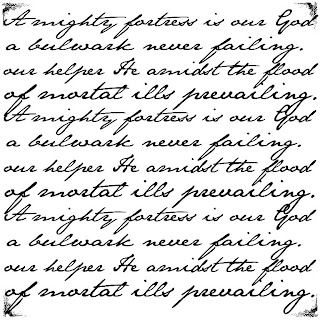 A mighty fortress is our God
a bulwark never failing.
our helper He amidst the flood
of mortal ills prevailing.
A mighty fortress is our God
a bulwark never failing.
our helper He amidst the flood
of mortal ills prevailing.
A mighty fortress is our God
a bulwark never failing.
our helper He amidst the flood
of mortal ills prevailing.